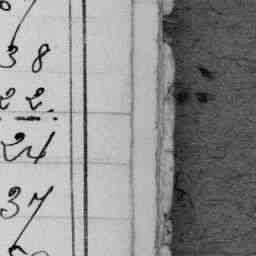 38
22.
24
37